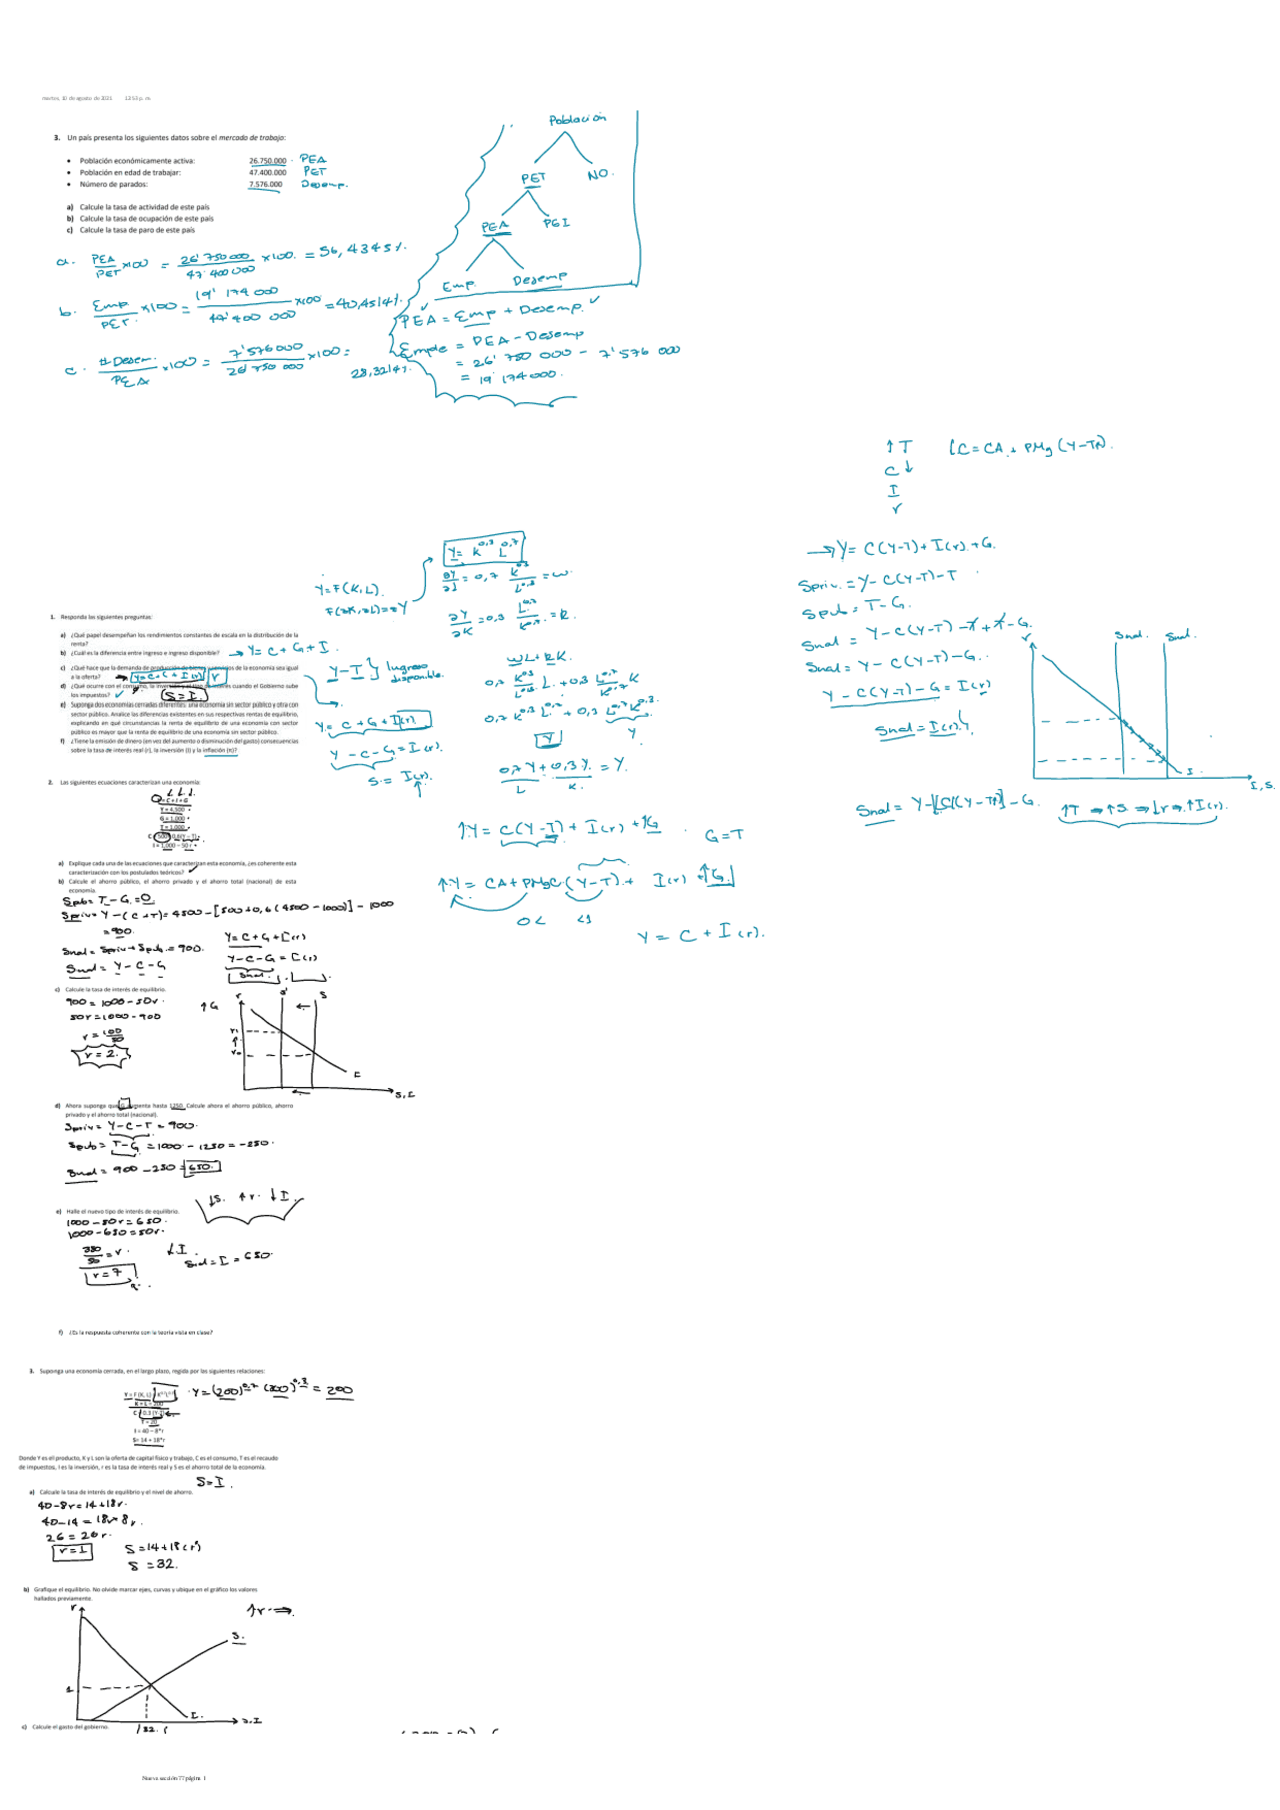 martes, 10 de agosto de 2021 12:53 p. m.
3. Un país presenta los siguientes datos sobre el mercado de trabajo:
• Población económicamente activa: 26.750.000 PEA
• Población en edad de trabajar: 47.400.000 PET
• Número de parados: 7.576.000 Desemp.
a) Calcule la tasa de actividad de este país
b) Calcule la tasa de ocupación de este país
c) Calcule la tasa de paro de este país
Población
PET NO.
PEA PEI
Emp. Desemp
a. PEA/PET x100 = 26'750000/47'400000 x100. = 56,4345%.
b. Emp/PET. x100 = 19'174000/47'400 000 x100 = 40,4514%.
c. #Desem./PEA x100 = 7'576000/26'750 000 x100 = 28,3214%.
PEA = Emp + Desemp. ✓
= PEA - Desemp
= 26'750 000 - 7'576 000
= 19'174000.
↑T
C↓
I
r
→Y = C(Y-T) + I(r) + G.
Spriv. = Y - C(Y-T) - T
Spub = T - G.
Snal = Y - C(Y-T) - T + T - G.
Snal = Y - C(Y-T) - G.
Y - C(Y-T) - G = I(r)
Snal = I(r)
r Snal. Snal.
I.
I, S.
↑T ⇒ ↑S ⇒ ↓r ⇒ ↑I(r).
1. Responda las siguientes preguntas:
a) ¿Qué papel desempeñan los rendimientos constantes de escala en la distribución de la
renta?
b) ¿Cuál es la diferencia entre ingreso e ingreso disponible? → Y = C + G + I.
c) ¿Qué hace que la demanda de producción de bienes y servicios de la economía sea igual
a la oferta? Y = C + G + I(r) r
d) ¿Qué ocurre con el consumo, la inversión y el tipo de interés cuando el Gobierno sube
los impuestos? ✓ S = I.
e) Suponga dos economías cerradas diferentes: una economía sin sector público y otra con
sector público. Analice las diferencias existentes en sus respectivas rentas de equilibrio,
explicando en qué circunstancias la renta de equilibrio de una economía con sector
público es mayor que la renta de equilibrio de una economía sin sector público.
f) ¿Tiene la emisión de dinero (en vez del aumento o disminución del gasto) consecuencias
sobre la tasa de interés real (r), la inversión (I) y la inflación (π)?
Y = F(K, L).
F(zK, zL) = zY
Y-T } Ingreso disponible.
Y = C + G + I(r)
Y - C - G = I(r).
S = I(r).
Y = K^0,3 L^0,7
∂Y/∂L = 0,7 K^0,3/L^0,3 = w.
∂Y/∂K = 0,3 L^0,7/K^0,7 = R.
wL + RK.
0,7 K^0,3/L^0,3 . L + 0,3 L^0,7/K^0,7 K
0,7 K^0,3 L^0,7 + 0,3 L^0,7 K^0,3.
Y Y
0,7 Y + 0,3 Y. = Y.
L K.
↑Y = C(Y-T) + I(r) + ↑G . G = T
↑Y = CA + PMgC(Y-T) + I(r) + ↑G.
0 < <1
Y = C + I(r).
2. Las siguientes ecuaciones caracterizan una economía:
Y = C + I + G
Y = 4,500
G = 1,000
T = 1,000
I = 1,000 - 50 r
a) Explique cada una de las ecuaciones que caracterizan esta economía, ¿es coherente esta
caracterización con los postulados teóricos? ✓
b) Calcule el ahorro público, el ahorro privado y el ahorro total (nacional) de esta
economía.
Spub = T - G = 0
Spriv = Y - (C + T) = 4500 - [500 + 0,6(4500 - 1000)] - 1000
= 900.
Snal = Spriv + Spub = 900.
Snal = Y - C - G
Y = C + G + I(r)
Y - C - G = I(r)
Snal.
c) Calcule la tasa de interés de equilibrio.
900 = 1000 - 50r.
50r = 1000 - 900
r = 100/50
r = 2.
↑G
r S' S
r1
r0
I
S, I
d) Ahora suponga que G aumenta hasta 1250. Calcule ahora el ahorro público, ahorro
privado y el ahorro total (nacional).
Spriv = Y - C - T = 900.
Spub = T - G = 1000 - 1250 = -250.
Snal = 900 - 250 = 650.
↓S. ↑r. ↓I.
e) Halle el nuevo tipo de interés de equilibrio.
1000 - 50r = 650.
1000 - 650 = 50r.
350/50 = r.
r = 7
↓I.
Snal = I = 650.
f) ¿Es la respuesta coherente con la teoría vista en clase?
3. Suponga una economía cerrada, en el largo plazo, regida por las siguientes relaciones:
Y = (200)^0,7 (200)^0,3 = 200
K = L = 200
T = 20
I = 40 - 8*r
S = 14 + 18*r
Donde Y es el producto, K y L son la oferta de capital físico y trabajo, C es el consumo, T es el recaudo
de impuestos, I es la inversión, r es la tasa de interés real y S es el ahorro total de la economía.
S = I.
a) Calcule la tasa de interés de equilibrio y el nivel de ahorro.
40 - 8r = 14 + 18r.
40 - 14 = 18r + 8r.
26 = 26r.
r = 1
S = 14 + 18(r)
S = 32.
b) Grafique el equilibrio. No olvide marcar ejes, curvas y ubique en el gráfico los valores
hallados previamente.
r ↑r →
S.
1
I.
S, I
32.
c) Calcule el gasto del gobierno.
Nueva sección 77 página 1